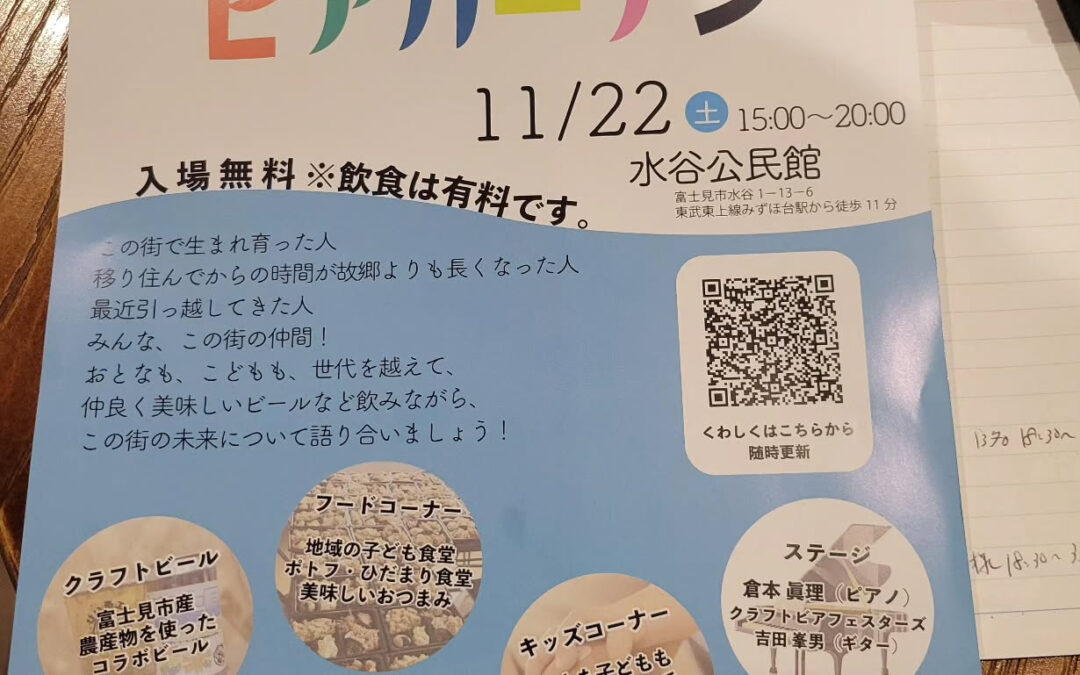 ビアガーデン
11/22 土 15:00〜20:00
水谷公民館
富士見市水谷1-13-6
東武東上線みずほ台駅から徒歩11分
入場無料 ※飲食は有料です。
この街で生まれ育った人
移り住んでからの時間が故郷よりも長くなった人
最近引っ越してきた人
みんな、この街の仲間!
おとなも、こどもも、世代を越えて、
仲良く美味しいビールなど飲みながら、
この街の未来について語り合いましょう!
くわしくはこちらから
随時更新
フードコーナー
地域の子ども食堂
ポトフ・ひだまり食堂
美味しいおつまみ
クラフトビール
富士見市産
農産物を使った
コラボビール
キッズコーナー
も子どもも
ステージ
倉本 眞理(ピアノ)
クラフトビアフェスターズ
吉田 峯男(ギター)
18:30〜
様 18:30〜